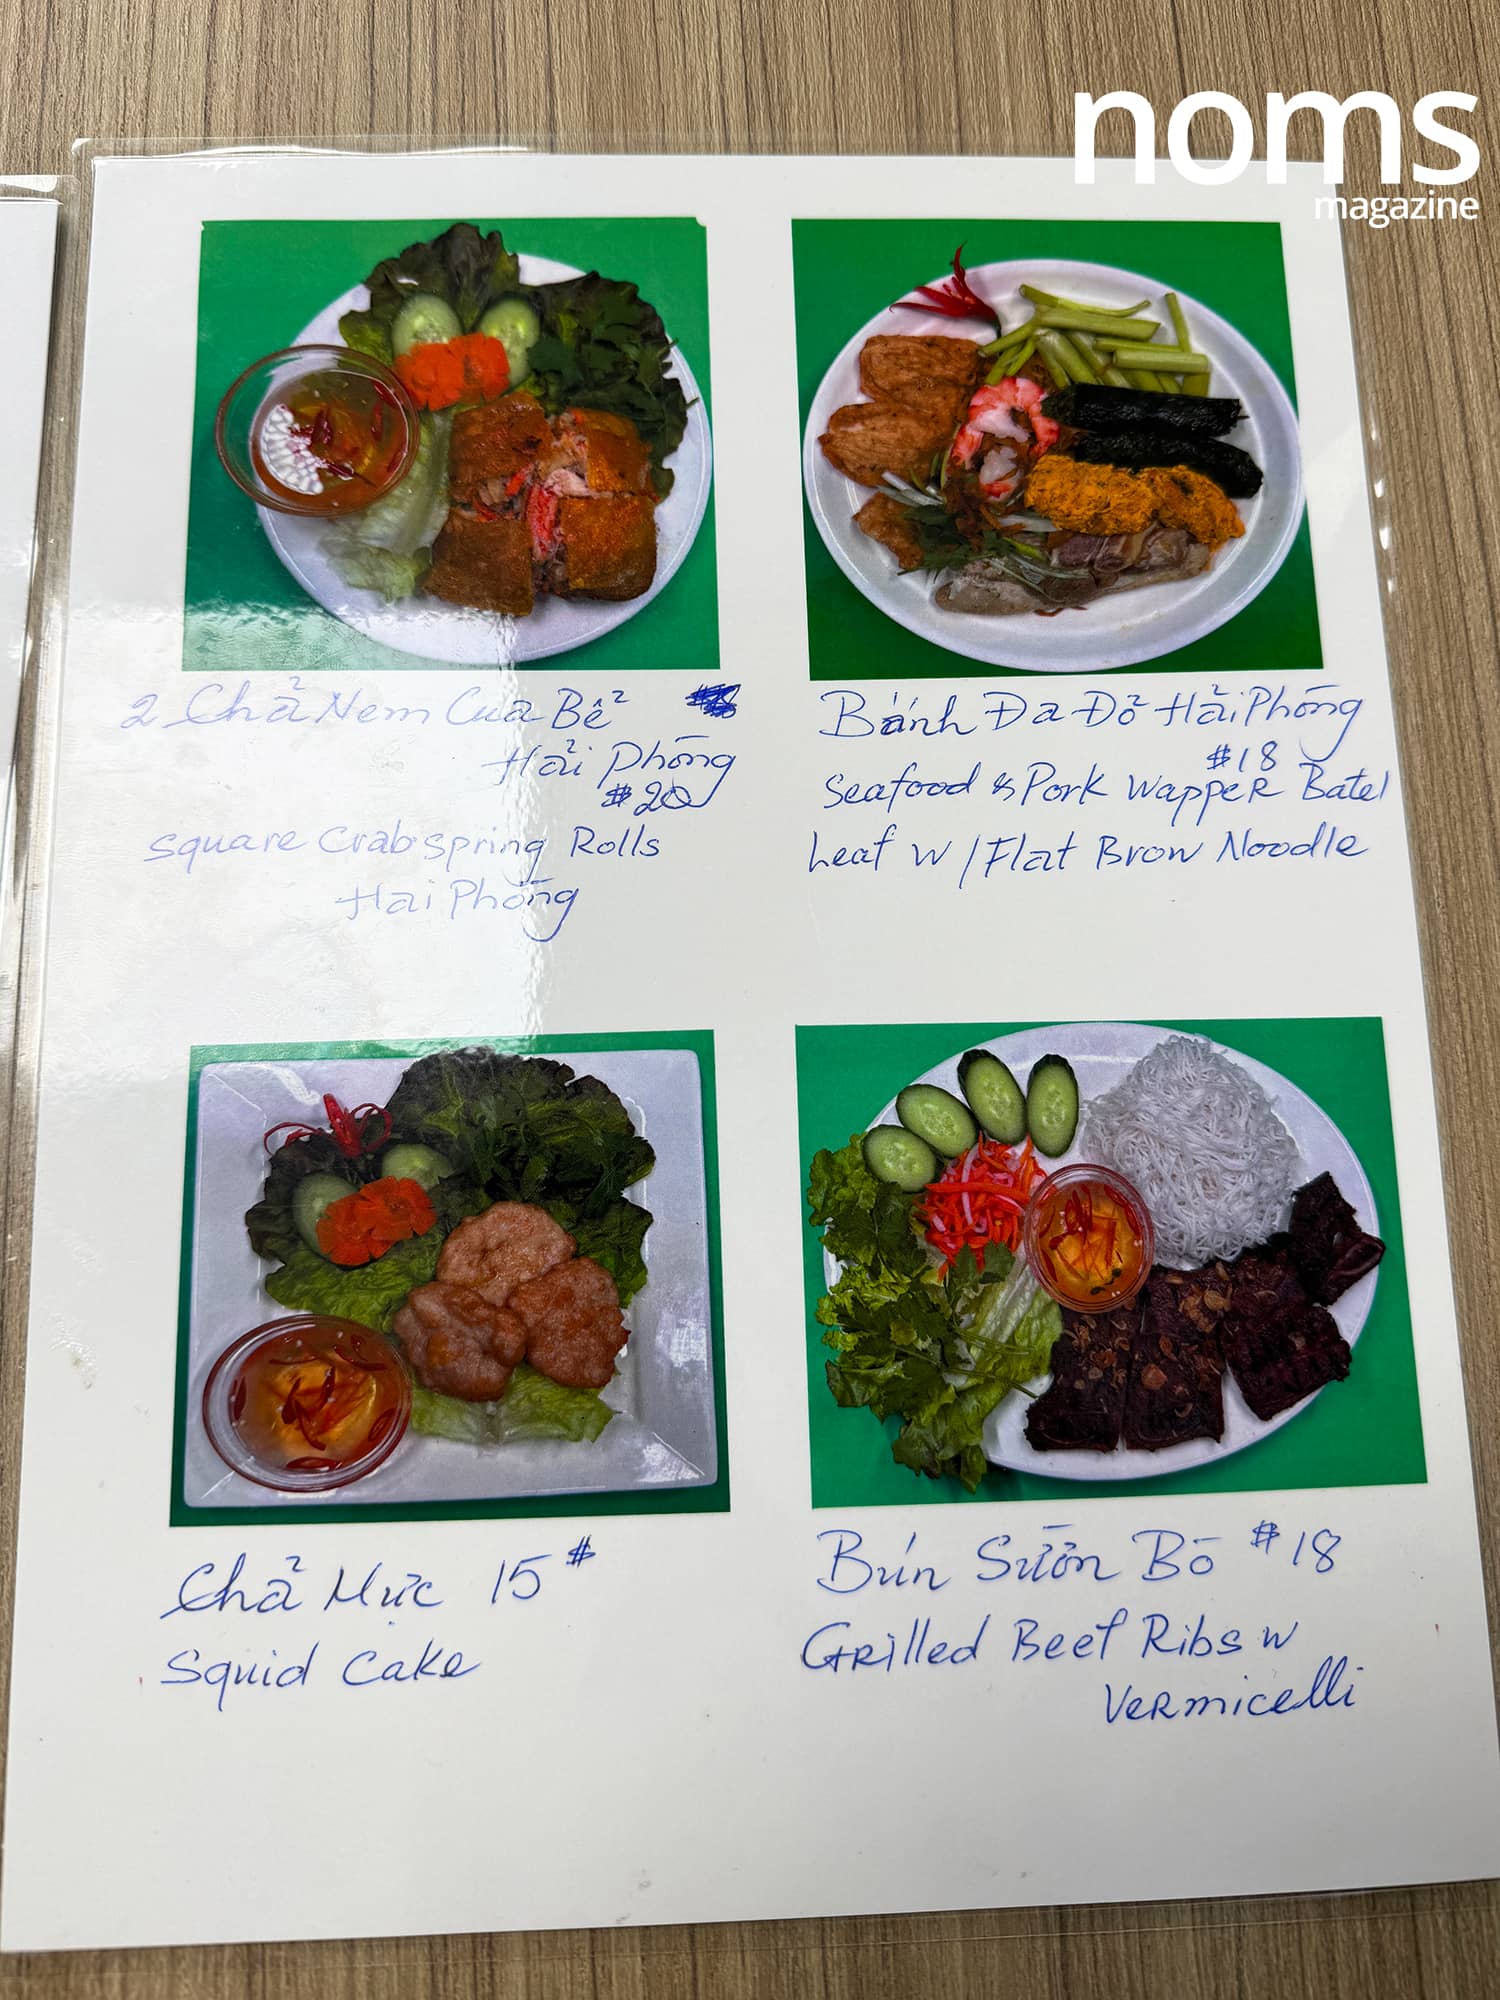 noms
magazine
2 Chả Nem Cua Bể
Hải Phòng
$20
Square Crab Spring Rolls
Hai Phòng
Bánh Đa Đỏ Hải Phòng
$18
Seafood & Pork Wapper Batel
Leaf w/Flat Brow Noodle
Chả Mực 15$
Squid Cake
Bún Sườn Bò $18
Grilled Beef Ribs w
Vermicelli